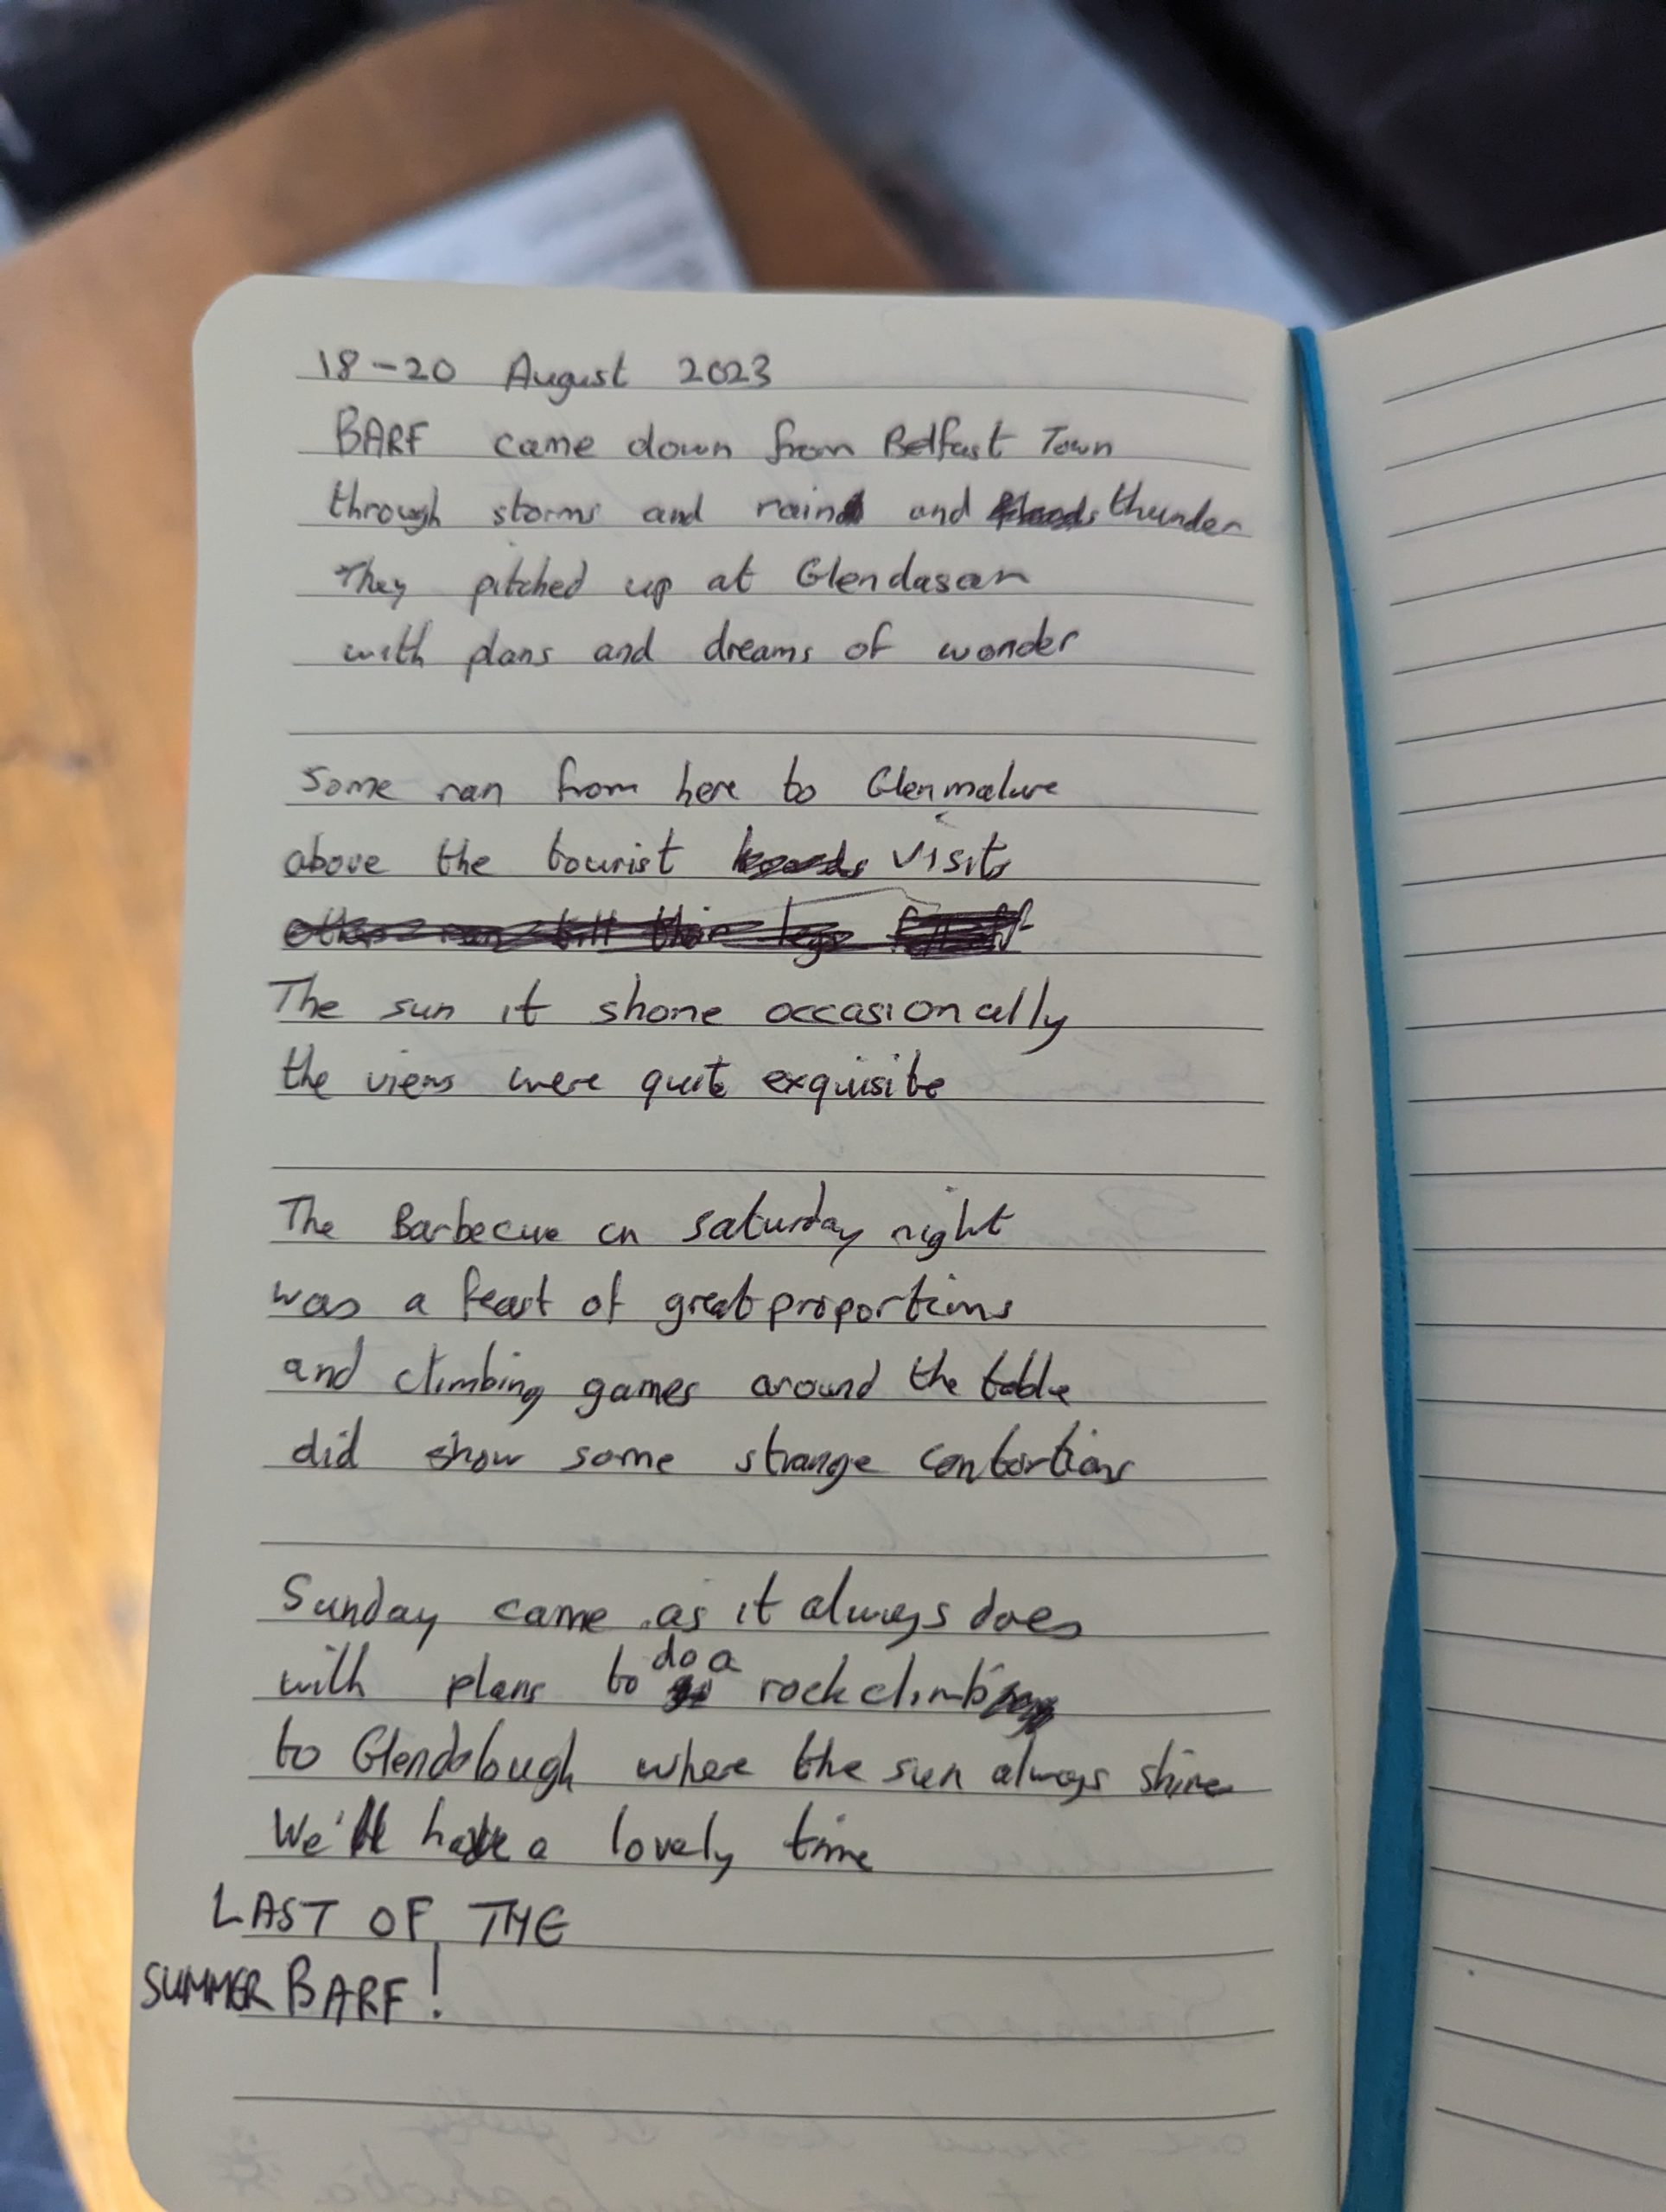 18-20 August 2023
BARF came down from Belfast Town
through storms and rain and thunder
They pitched up at Glendasan
with plans and dreams of wonder
Some ran from here to Glenmalure
above the tourist visits
The sun it shone occasionally
the views were quite exquisite
The Barbecue on Saturday night
was a feast of great proportions
and climbing games around the table
did show some strange contortions
Sunday came as it always does
with plans to do a rock climb
to Glendalough where the sun always shines
We'll have a lovely time
LAST OF THE
SUMMER BARF!